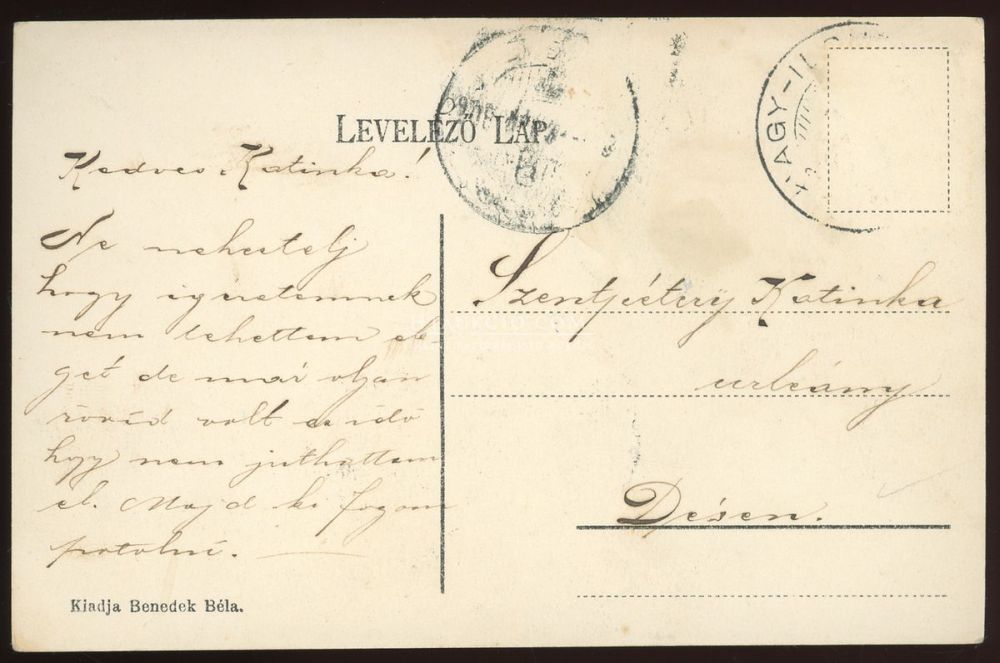 LEVELEZŐ LAP
NAGY-IL
Kedves Katinka!
Ne neheztelj
hogy igéretemnek
nem tehettem ele-
get de már oljan
rövid volt az idő
hogy nem juthattam
el. Majd ki fogom
potolni.
Szentpétery Katinka
urleány
Désen.
Kiadja Benedek Béla.